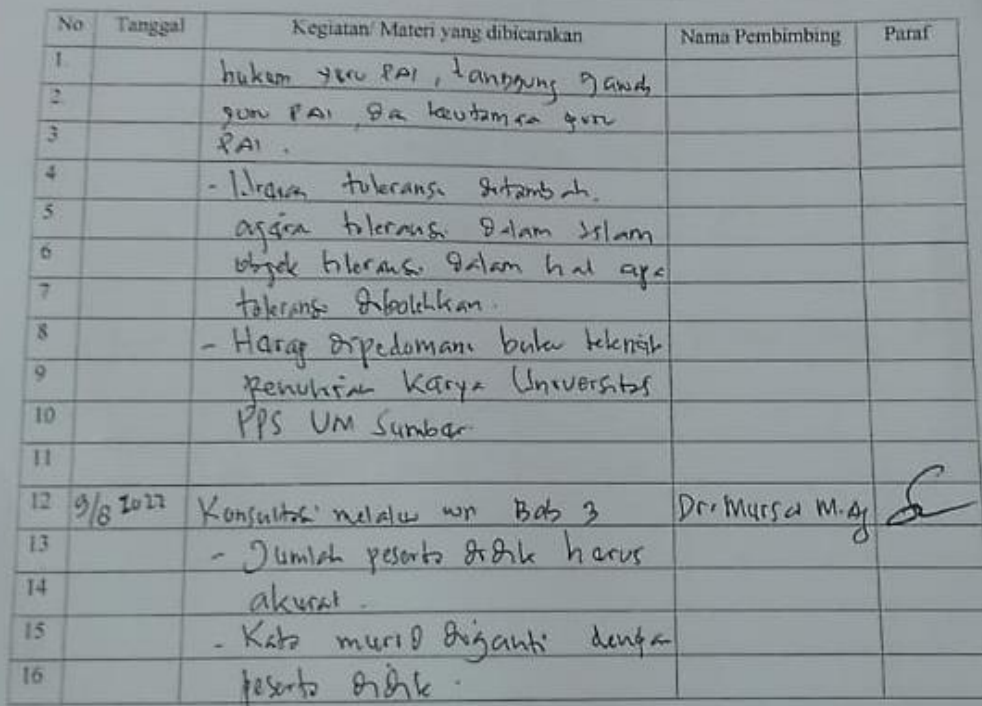 No Tanggal Kegiatan/ Materi yang dibicarakan Nama Pembimbing Paraf
1. hukum guru PAI, tanggung jawab
2. guru PAI, da keutamaa guru
3 PAI.
4 - Uraian toleransi ditambah.
5 toleransi dalam Islam
6 objek toleransi dalam hal apa
7 toleransi dibolehkan.
8 - Harap dipedomani buku teknik
9 Penulisan Karya Universitas
10 PPS UM Sumbar
11
12 9/8 2022 Konsultasi melalui Bab 3 Dr. Mursal M.Ag
13 - Jumlah peserta didik harus
14 akurat.
15 - Kata murid diganti denga
16 peserta didik.